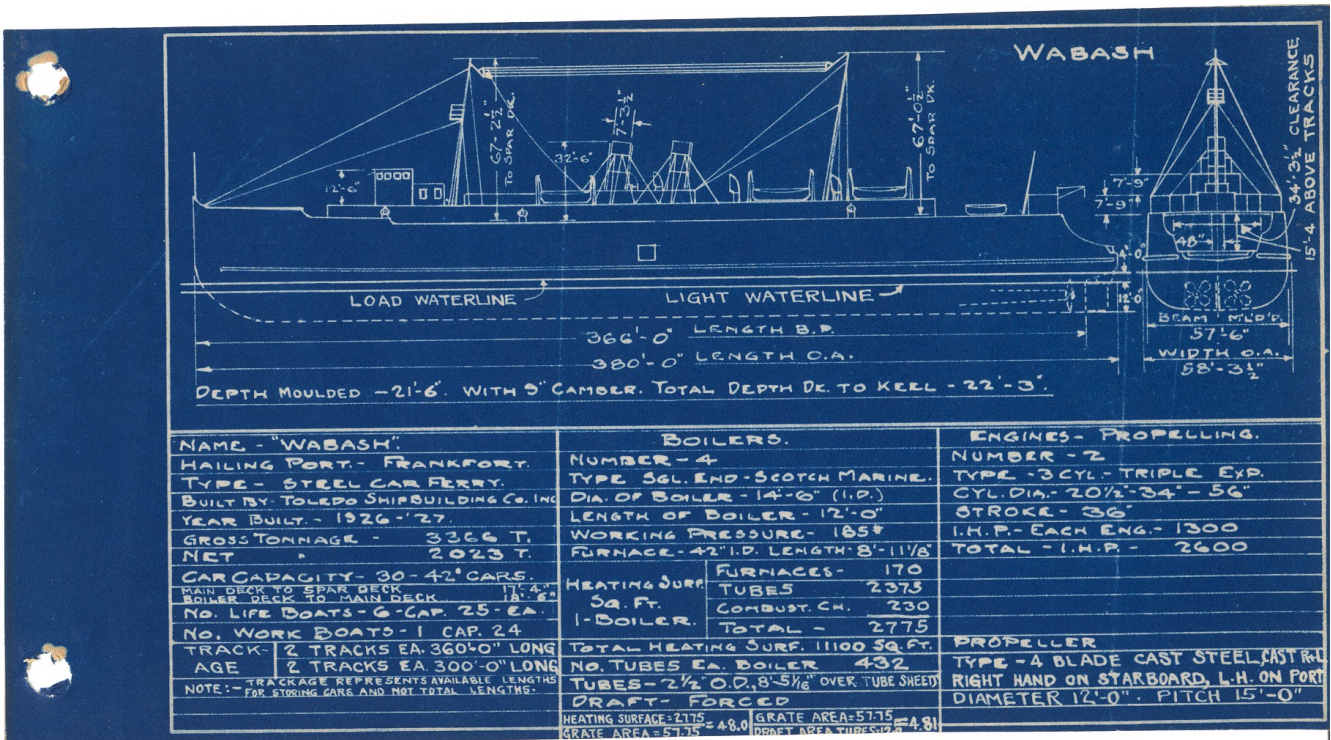 WABASH
67'-2½" TO SPAR DK.
7'-3½"
32'-6"
12'-6"
67'-0½" TO SPAR DK.
7'-9"
7'-9"
34'-3½" CLEARANCE
15'-4 ABOVE TRACKS
48"
4'-0"
12'-0
LOAD WATERLINE
LIGHT WATERLINE
366'-0" LENGTH B.P.
380'-0" LENGTH O.A.
BEAM ML'D'D.
57'-6"
WIDTH O.A.
58'-3½"
DEPTH MOULDED - 21'-6". WITH 9" CAMBER. TOTAL DEPTH DK. TO KEEL - 22'-3".
NAME - "WABASH"
HAILING PORT. - FRANKFORT.
TYPE - STEEL CAR FERRY.
BUILT BY. TOLEDO SHIPBUILDING CO. INC
YEAR BUILT. - 1926-'27.
GROSS TONNAGE - 3366 T.
NET " 2023 T.
CAR CAPACITY - 30-42' CARS.
MAIN DECK TO SPAR DECK 17'-4"
BOILER DECK TO MAIN DECK 18'-6"
NO. LIFE BOATS - 6 - CAP. 25 - EA.
NO. WORK BOATS - 1 CAP. 24
TRACK-AGE
2 TRACKS EA. 360'-0" LONG
2 TRACKS EA. 300'-0" LONG
NOTE:- TRACKAGE REPRESENTS AVAILABLE LENGTHS
FOR STORING CARS AND NOT TOTAL LENGTHS.
BOILERS.
NUMBER - 4
TYPE SGL. END - SCOTCH MARINE.
DIA. OF BOILER - 14'-6" (I.D.)
LENGTH OF BOILER - 12'-0"
WORKING PRESSURE - 185#
FURNACE - 42" I.D. LENGTH - 8'-11⅛"
HEATING SURF.
SQ. FT.
1-BOILER.
FURNACES - 170
TUBES 2375
COMBUST. CH. 230
TOTAL - 2775
TOTAL HEATING SURF. 11100 SQ. FT.
NO. TUBES EA. BOILER 432
TUBES - 2½" O.D., 8'-5 1/16" OVER TUBE SHEETS
DRAFT - FORCED
HEATING SURFACE = 2775
GRATE AREA = 57.75
= 48.0
GRATE AREA = 57.75
DRAFT AREA TUBES
= 4.81
ENGINES - PROPELLING.
NUMBER - 2
TYPE - 3 CYL. - TRIPLE EXP.
CYL. DIA. - 20½" - 34" - 56"
STROKE - 36"
I.H.P. - EACH ENG. - 1300
TOTAL - I.H.P. - 2600
PROPELLER
TYPE - 4 BLADE CAST STEEL, CAST R+L
RIGHT HAND ON STARBOARD, L.H. ON PORT
DIAMETER 12'-0". PITCH 15'-0"